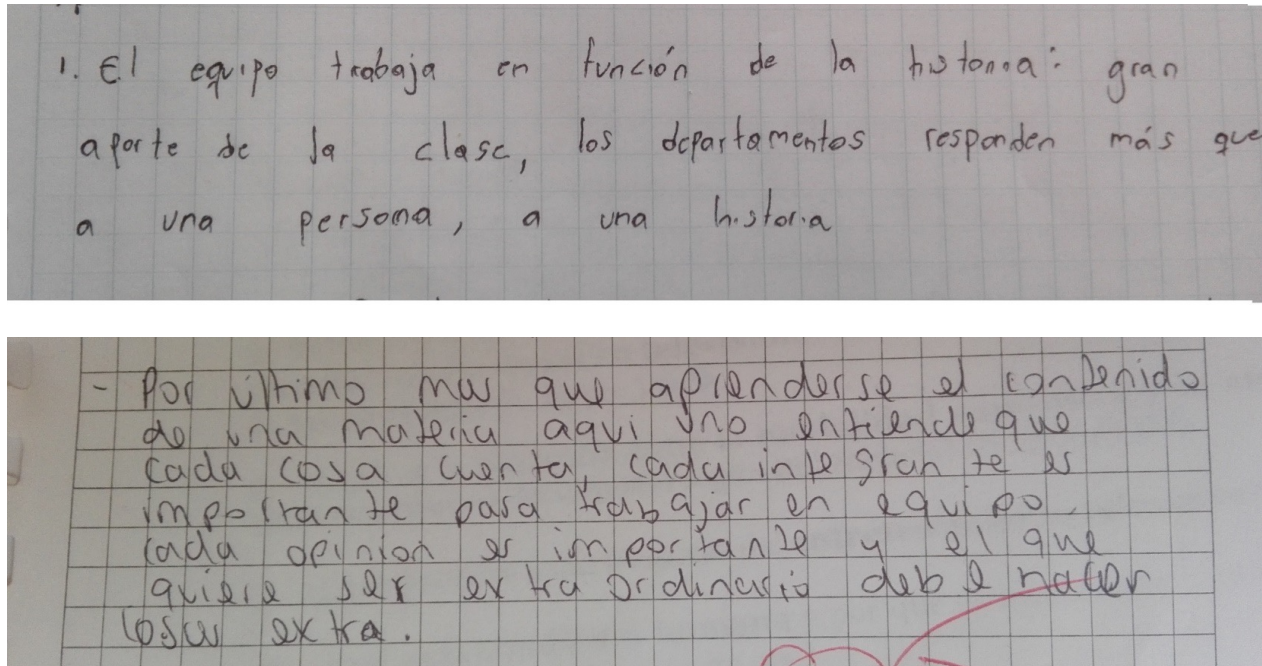 1. El equipo trabaja en función de la historia: gran
aporte de la clase, los departamentos responden más que
a una persona, a una historia
- Por último mas que aprenderse el contenido
de una materia aqui uno entiende que
cada cosa cuenta, cada integrante es
importante para trabajar en equipo,
cada opinion es importante y el que
quiere ser extra ordinario debe hacer
cosas extra.